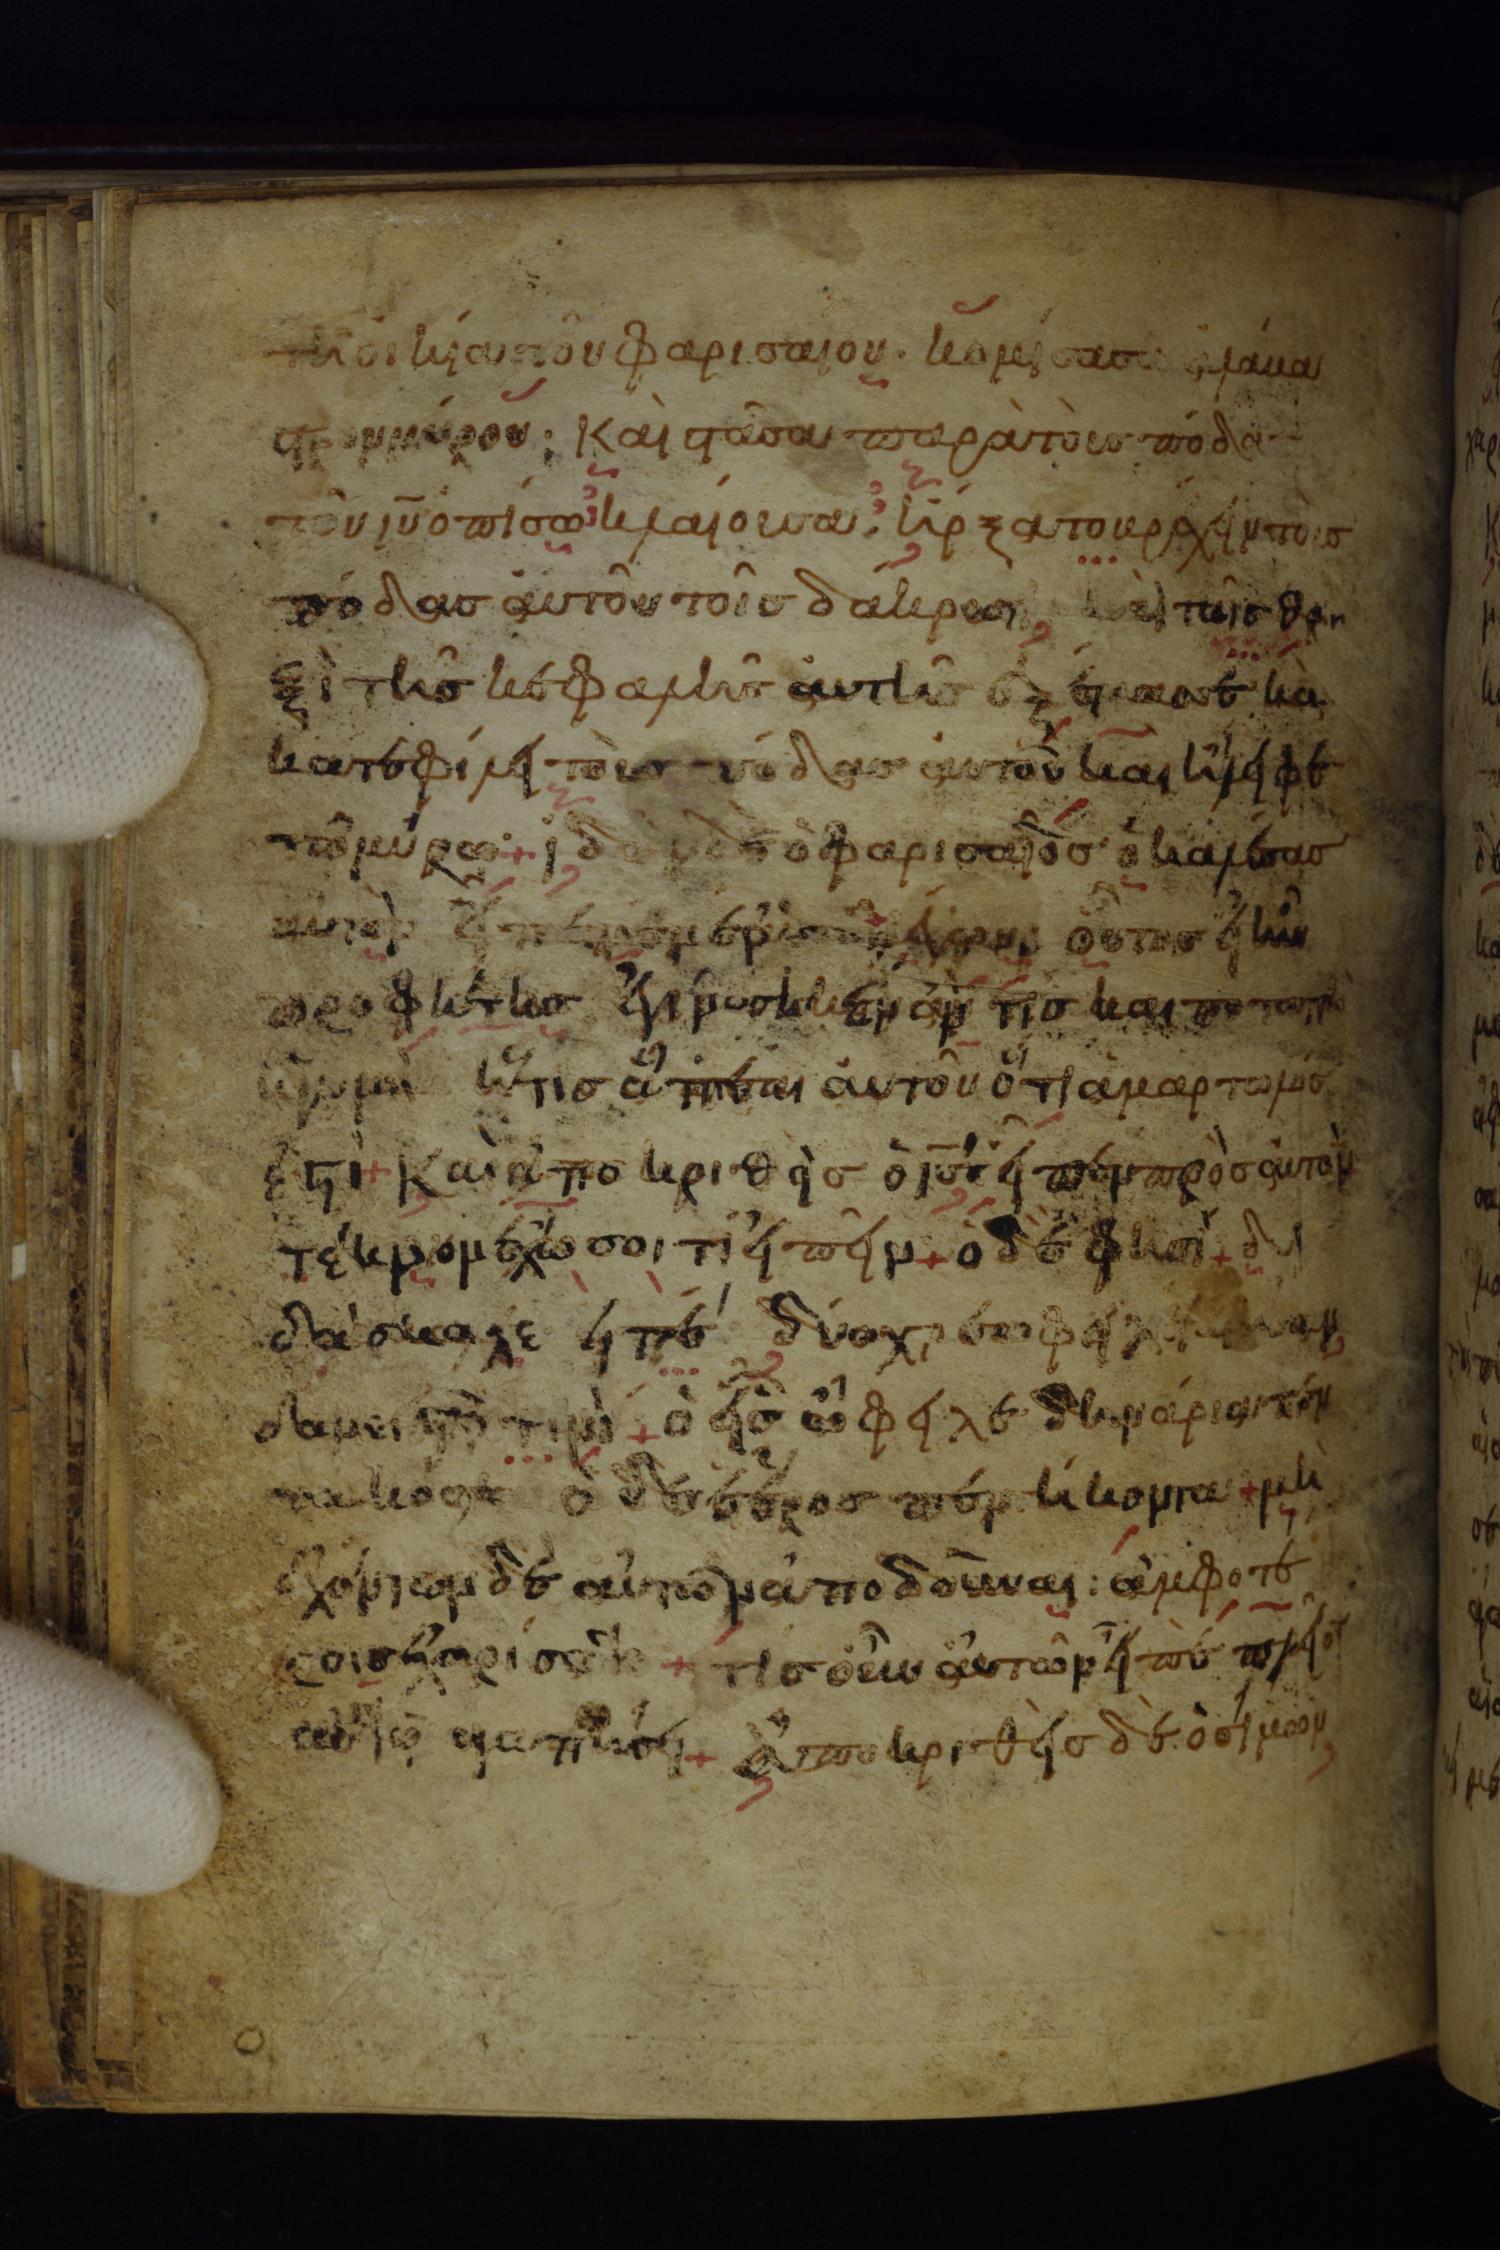 τῆ οικία τοῦ φαρισαίου· κομίσασα ἀλά
μύρου; Καὶ στᾶσα παρὰ τοὺσ πόδασ
τοῦ ιυ ὀπίσω κλαίουσα· ἤρξατο βρέχην τοὺσ
πόδασ ἀυτοῦ τοῖσ δάκρυσι καὶ ταῖσ θρι
ξὶ τῆσ κεφαλῆσ ἀυτῆσ ἐξέμασε καὶ
κατεφίλη τοὺσ πόδασ ἀυτοῦ καὶ ἤληφε
τῶ μύρω + ἰδὼν δὲ ὁ φαρισαῖοσ ὁ καλέσασ
αὐτὸν λέγων οὗτοσ ἠ ἦν
προφήτησ ἐγίνωσκεν ἂν τίσ καὶ ποταπὴ
ἡ γυνὴ ἥτισ ἅπτεται ἀυτοῦ ὅτι ἁμαρτωλόσ
ἐστι + Καὶ ἀποκριθὴσ ὁ ισ ἠπεν πρὸσ ἀυτὸν
ἔχω σοι τὶ ἠπῆν + ὁ δὲ φησὶ + δι
δάσκαλε ἠπέ δύο χρεοφηλέται ἦσαν
δανειστῆ τινὶ + ὁ ἦσ ὤφηλε δηνάρια πεν
τακόσια ὁ δὲ ἕτεροσ πεντήκοντα + μὴ
ἐχόντων δὲ αὐτῶν ἀποδοῦναι : ἀμφοτέ
ροισ ἐχαρίσατο + τίσ οὖν ἀυτῶν ἠπὲ πλῆον
αὐτὸν ἀγαπήση + Ἀποκριθὴσ δὲ ὁ σίμων